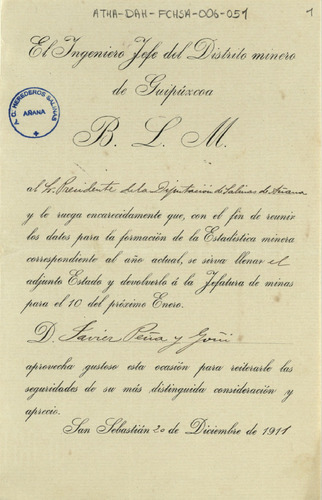 ATHA-DAH-FCHSA-006-051
1
El Ingeniero Jefe del Distrito minero
de Guipúzcoa
F. C. HEREDEROS SALINAS
AÑANA
B. L. M.
al Sr. Presidente de la Diputación de Salinas de Añana
y le ruega encarecidamente que, con el fin de reunir
los datos para la formación de la Estadística minera
correspondiente al año actual, se sirva llenar el
adjunto Estado y devolverlo á la Jefatura de minas
para el 10 del próximo Enero.
D. Javier Peña y Goñi
aprovecha gustoso esta ocasión para reiterarle las
seguridades de su más distinguida consideración y
aprecio.
San Sebastián 20 de Diciembre de 1911